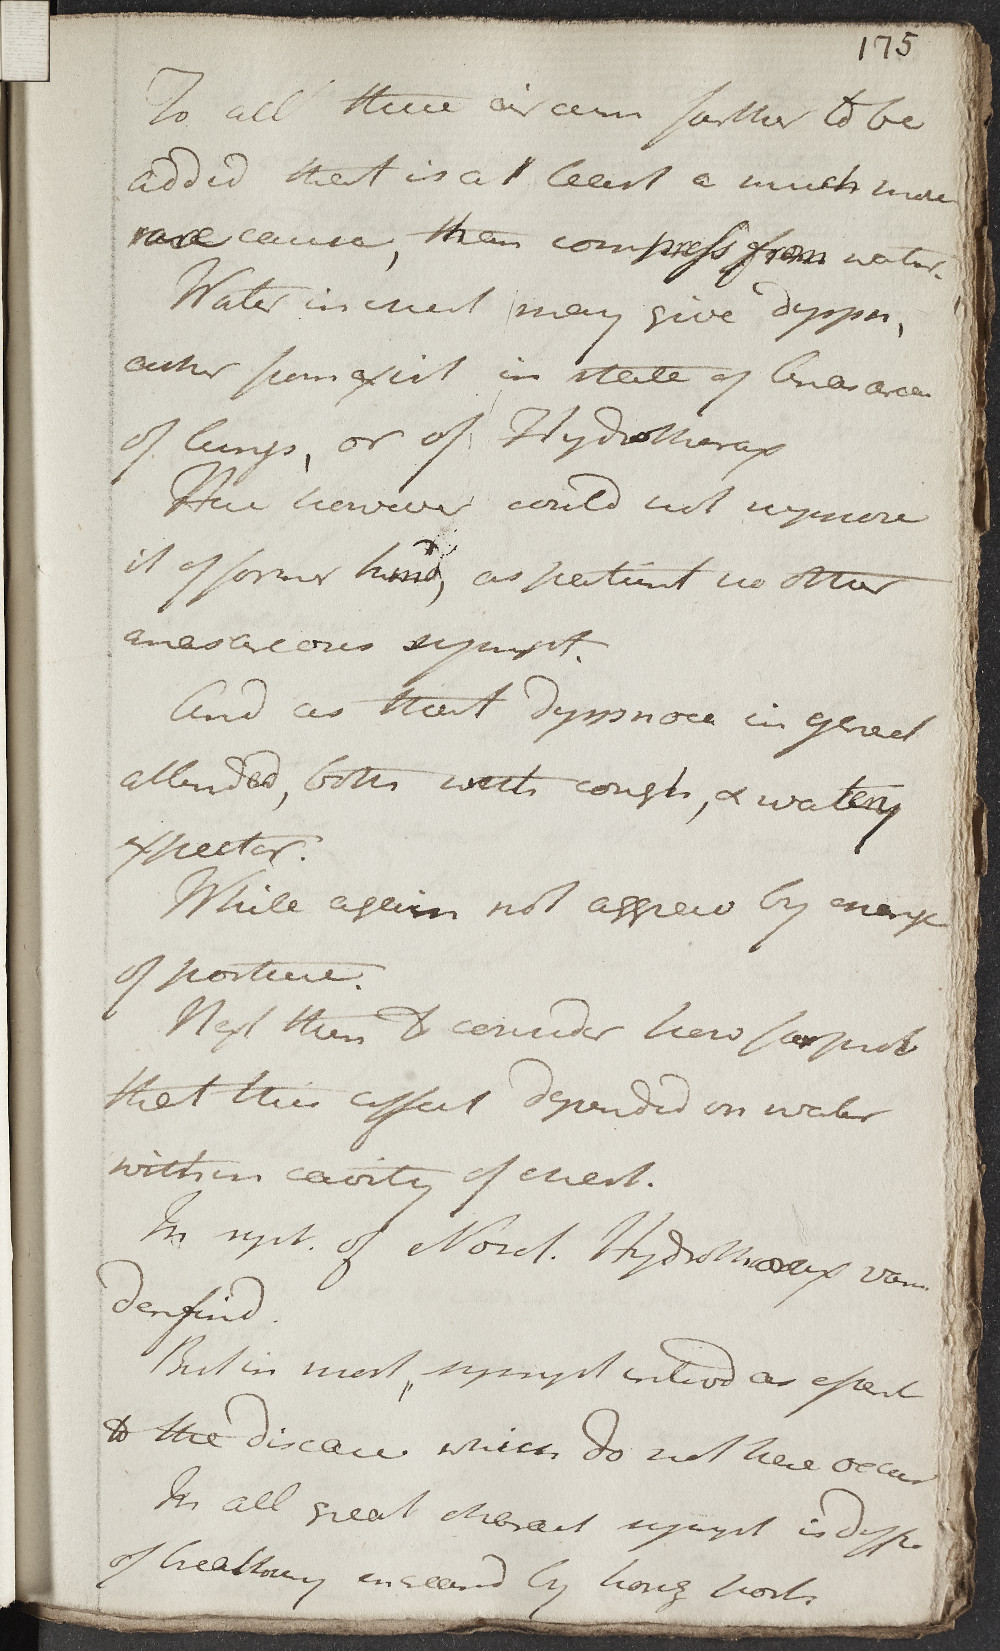 175
To all these circum farther to be
added that is at least a much more
rare cause, than compress from water.
Water in chest may give dyspn,
either from exist in state of Anasarca
of lungs, or of Hydrothorax
Here however could not suppose
it of former kind, as patient no other
anasarcous sympt.
And as that dyspnoea in geneal
attended, both with cough, & watery
expector.
While again not aggrav by change
of posture.
Next then to consider how far prob
that this affect depended on water
within cavity of chest.
In sypt. of Nosol. Hydrothorax
defind.
But in most, sympt introd as
to the disease which do not here occur
In all great charact sympt is dyff.
of breathing increasd by horiz